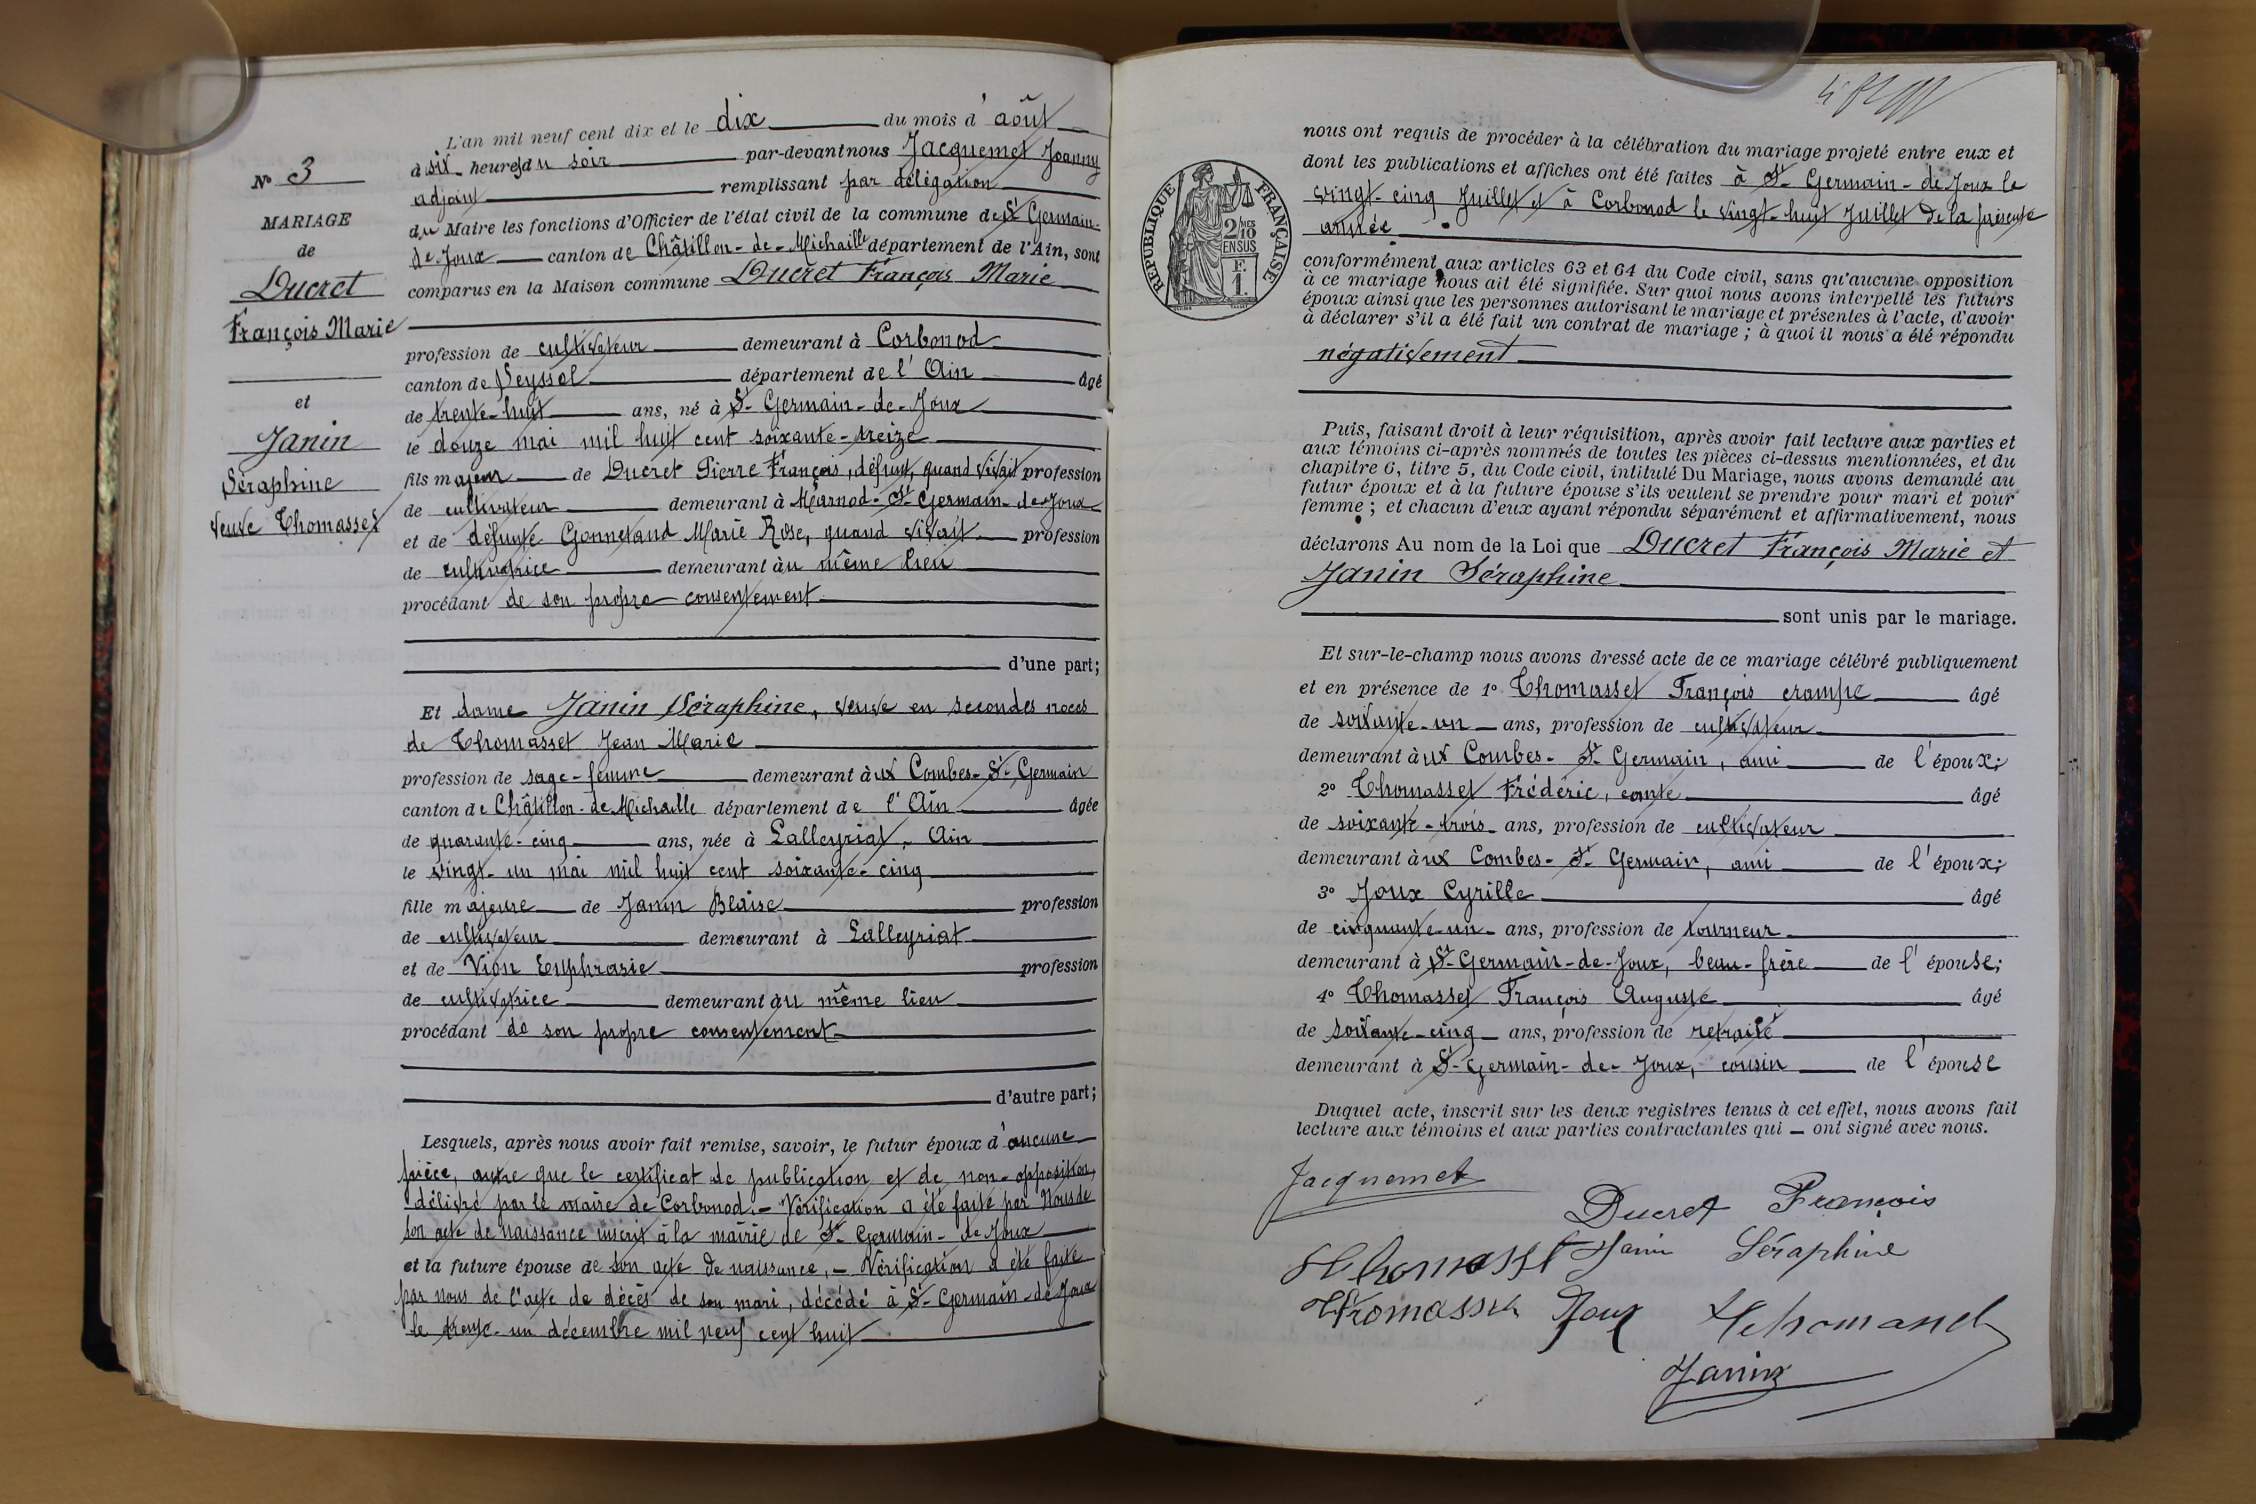 L'an mil neuf cent dix et le dix du mois d'août
à six heures du soir par-devant nous Jacquemet Joanny
adjoint remplissant par délégation
du Maire les fonctions d'Officier de l'état civil de la commune de St Germain-
de Joux canton de Châtillon-de-Michaille département de l'Ain, sont
comparus en la Maison commune Ducret François Marie
profession de cultivateur demeurant à Corbonod
canton de Seyssel département de l'Ain âgé
de trente-huit ans, né à St Germain-de-Joux
le douze mai mil huit cent soixante-treize
fils majeur de Ducret Pierre François, défunt, quand vivait profession
de cultivateur demeurant à Marnod-St Germain-de-Joux
et de défunte Gonnetand Marie Rose, quand vivait profession
de cultivatrice demeurant au même lieu
procédant de son propre consentement
d'une part;
Et dame Janin Séraphine, veuve en secondes noces
de Thomasset Jean Marie
profession de sage-femme demeurant aux Combes-St Germain
canton de Châtillon-de-Michaille département de l'Ain âgée
de quarante-cinq ans, née à Lalleyriat, Ain
le vingt-un mai mil huit cent soixante-cinq
fille majeure de Janin Blaise profession
de cultivateur demeurant à Lalleyriat
et de Vion Euphrasie profession
de cultivatrice demeurant au même lieu
procédant de son propre consentement
d'autre part;
Lesquels, après nous avoir fait remise, savoir, le futur époux d'aucune
pièce, autre que le certificat de publication et de non-opposition,
délivré par le maire de Corbonod.- Vérification a été faite par Nous de
son acte de naissance inscrit à la mairie de St Germain-de Joux
et la future épouse de son acte de naissance,- Vérification a été faite
par nous de l'acte de décès de son mari, décédé à St Germain-de Joux
le trente-un décembre mil neuf cent huit
No 3
MARIAGE
de
Ducret
François Marie
et
Janin
Séraphine
veuve Thomasset
nous ont requis de procéder à la célébration du mariage projeté entre eux et
dont les publications et affiches ont été faites à St Germain-de Joux le
vingt-cinq Juillet et à Corbonod le vingt-huit Juillet de la présente
année
RÉPUBLIQUE FRANÇAISE
2/10 MES
EN SUS
F.
1.
conformément aux articles 63 et 64 du Code civil, sans qu'aucune opposition
à ce mariage nous ait été signifiée. Sur quoi nous avons interpellé les futurs
époux ainsi que les personnes autorisant le mariage et présentes à l'acte, d'avoir
à déclarer s'il a été fait un contrat de mariage; à quoi il nous a été répondu
négativement
Puis, faisant droit à leur réquisition, après avoir fait lecture aux parties et
aux témoins ci-après nommés de toutes les pièces ci-dessus mentionnées, et du
chapitre 6, titre 5, du Code civil, intitulé Du Mariage, nous avons demandé au
futur époux et à la future épouse s'ils veulent se prendre pour mari et pour
femme; et chacun d'eux ayant répondu séparément et affirmativement, nous
déclarons Au nom de la Loi que Ducret François Marie et
Janin Séraphine
sont unis par le mariage.
Et sur-le-champ nous avons dressé acte de ce mariage célébré publiquement
et en présence de 1° Thomasset François crampe âgé
de soixante-un ans, profession de cultivateur
demeurant aux Combes-St Germain, ami de l'époux;
2° Thomasset Frédéric, comte âgé
de soixante-trois ans, profession de cultivateur
demeurant aux Combes-St Germain, ami de l'époux;
3° Joux Cyrille âgé
de cinquante-un ans, profession de tourneur
demeurant à St-Germain-de-Joux, beau-frère de l'épouse;
4° Thomasset François Auguste âgé
de soixante-cinq ans, profession de retraité
demeurant à St-Germain-de-Joux, cousin de l'épouse
Duquel acte, inscrit sur les deux registres tenus à cet effet, nous avons fait
lecture aux témoins et aux parties contractantes qui ont signé avec nous.
Jacquemet
Ducret François
Thomasset Janin Séraphine
Thomasset Joux Thomasset
Janin